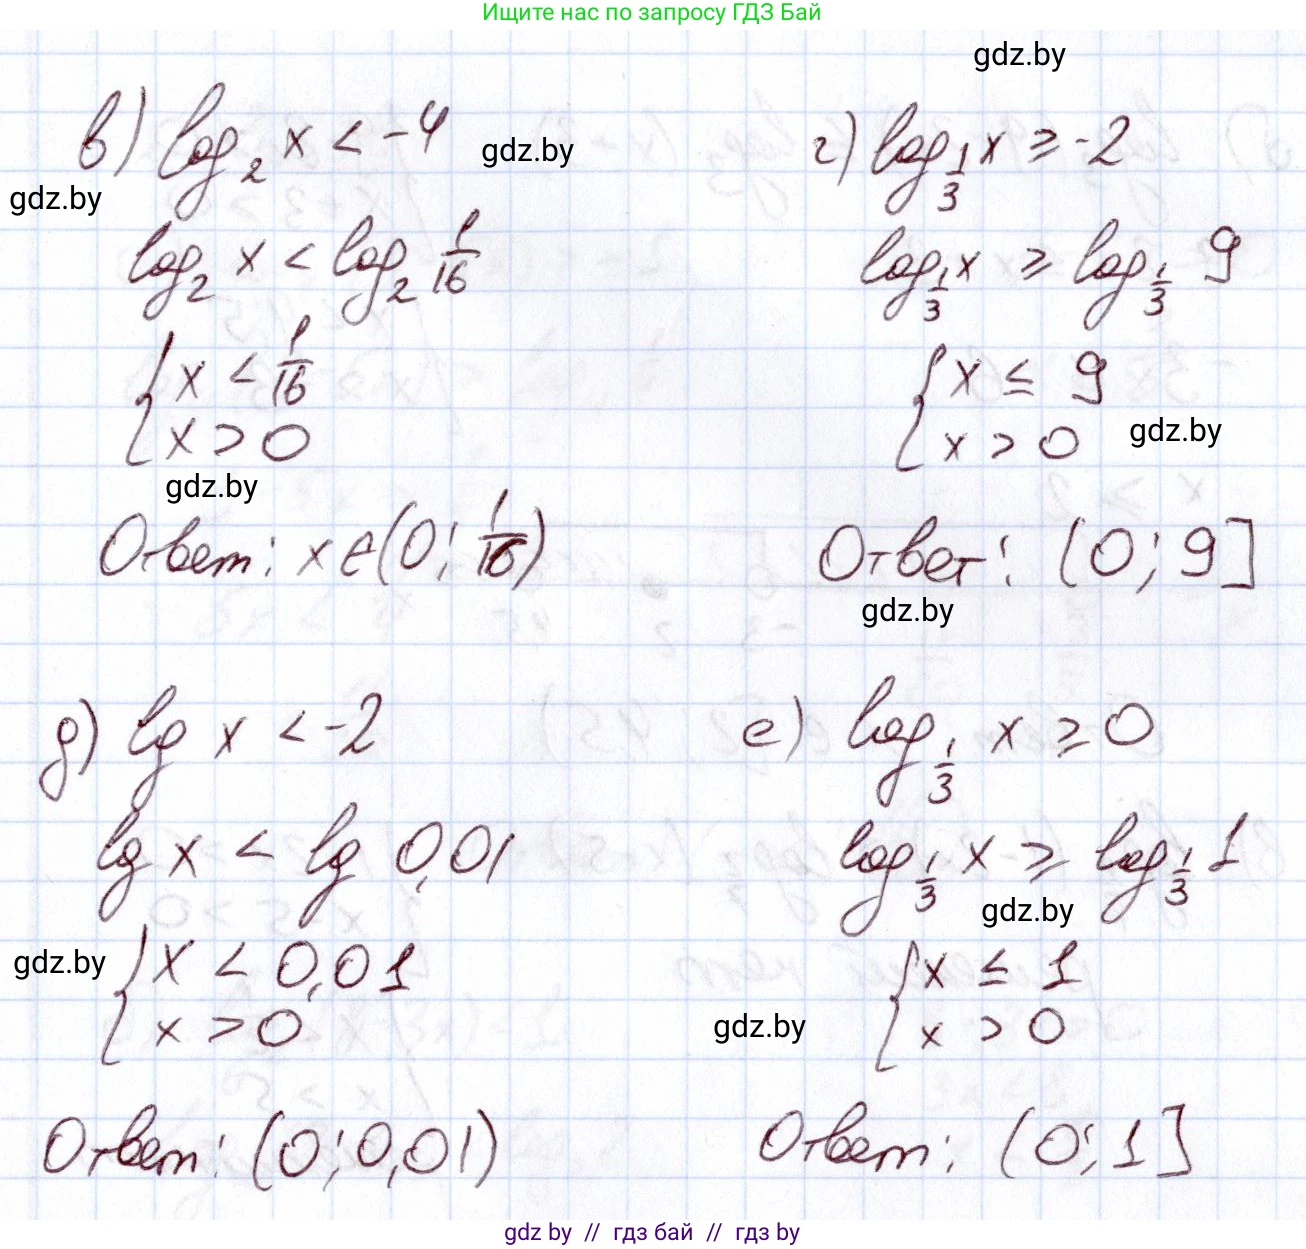 Ищите нас по запросу ГДЗ Бай
gdz.by
в) log₂ x < -4
gdz.by
gdz.by
log₂ x < log₂ 1/16
{ x < 1/16
x > 0
gdz.by
Ответ: x ∈ (0; 1/16)
г) log_{1/3} x ≥ -2
log_{1/3} x ≥ log_{1/3} 9
{ x ≤ 9
x > 0
gdz.by
Ответ: (0; 9]
gdz.by
д) lg x < -2
lg x < lg 0,01
gdz.by
{ x < 0,01
x > 0
Ответ: (0; 0,01)
е) log_{1/3} x ≥ 0
log_{1/3} x ≥ log_{1/3} 1
gdz.by
{ x ≤ 1
x > 0
gdz.by
Ответ: (0; 1]
gdz by // гдз бай // гдз by